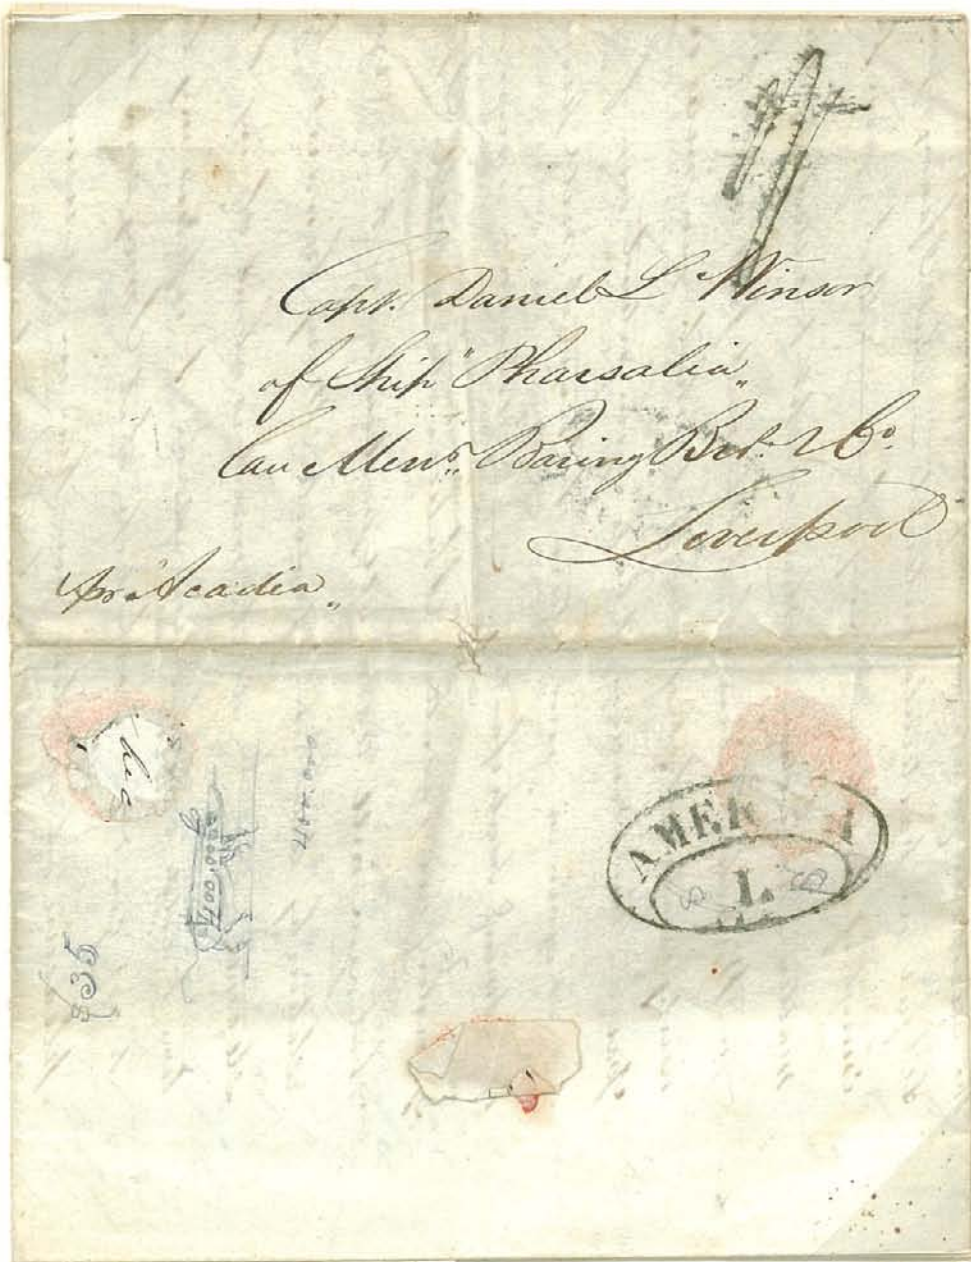 Capt. Daniel L Winsor
of Ship "Pharsalia"
Care Messrs. Baring Bros. & Co.
Liverpool
pr "Acadia"
AMER A
L
835